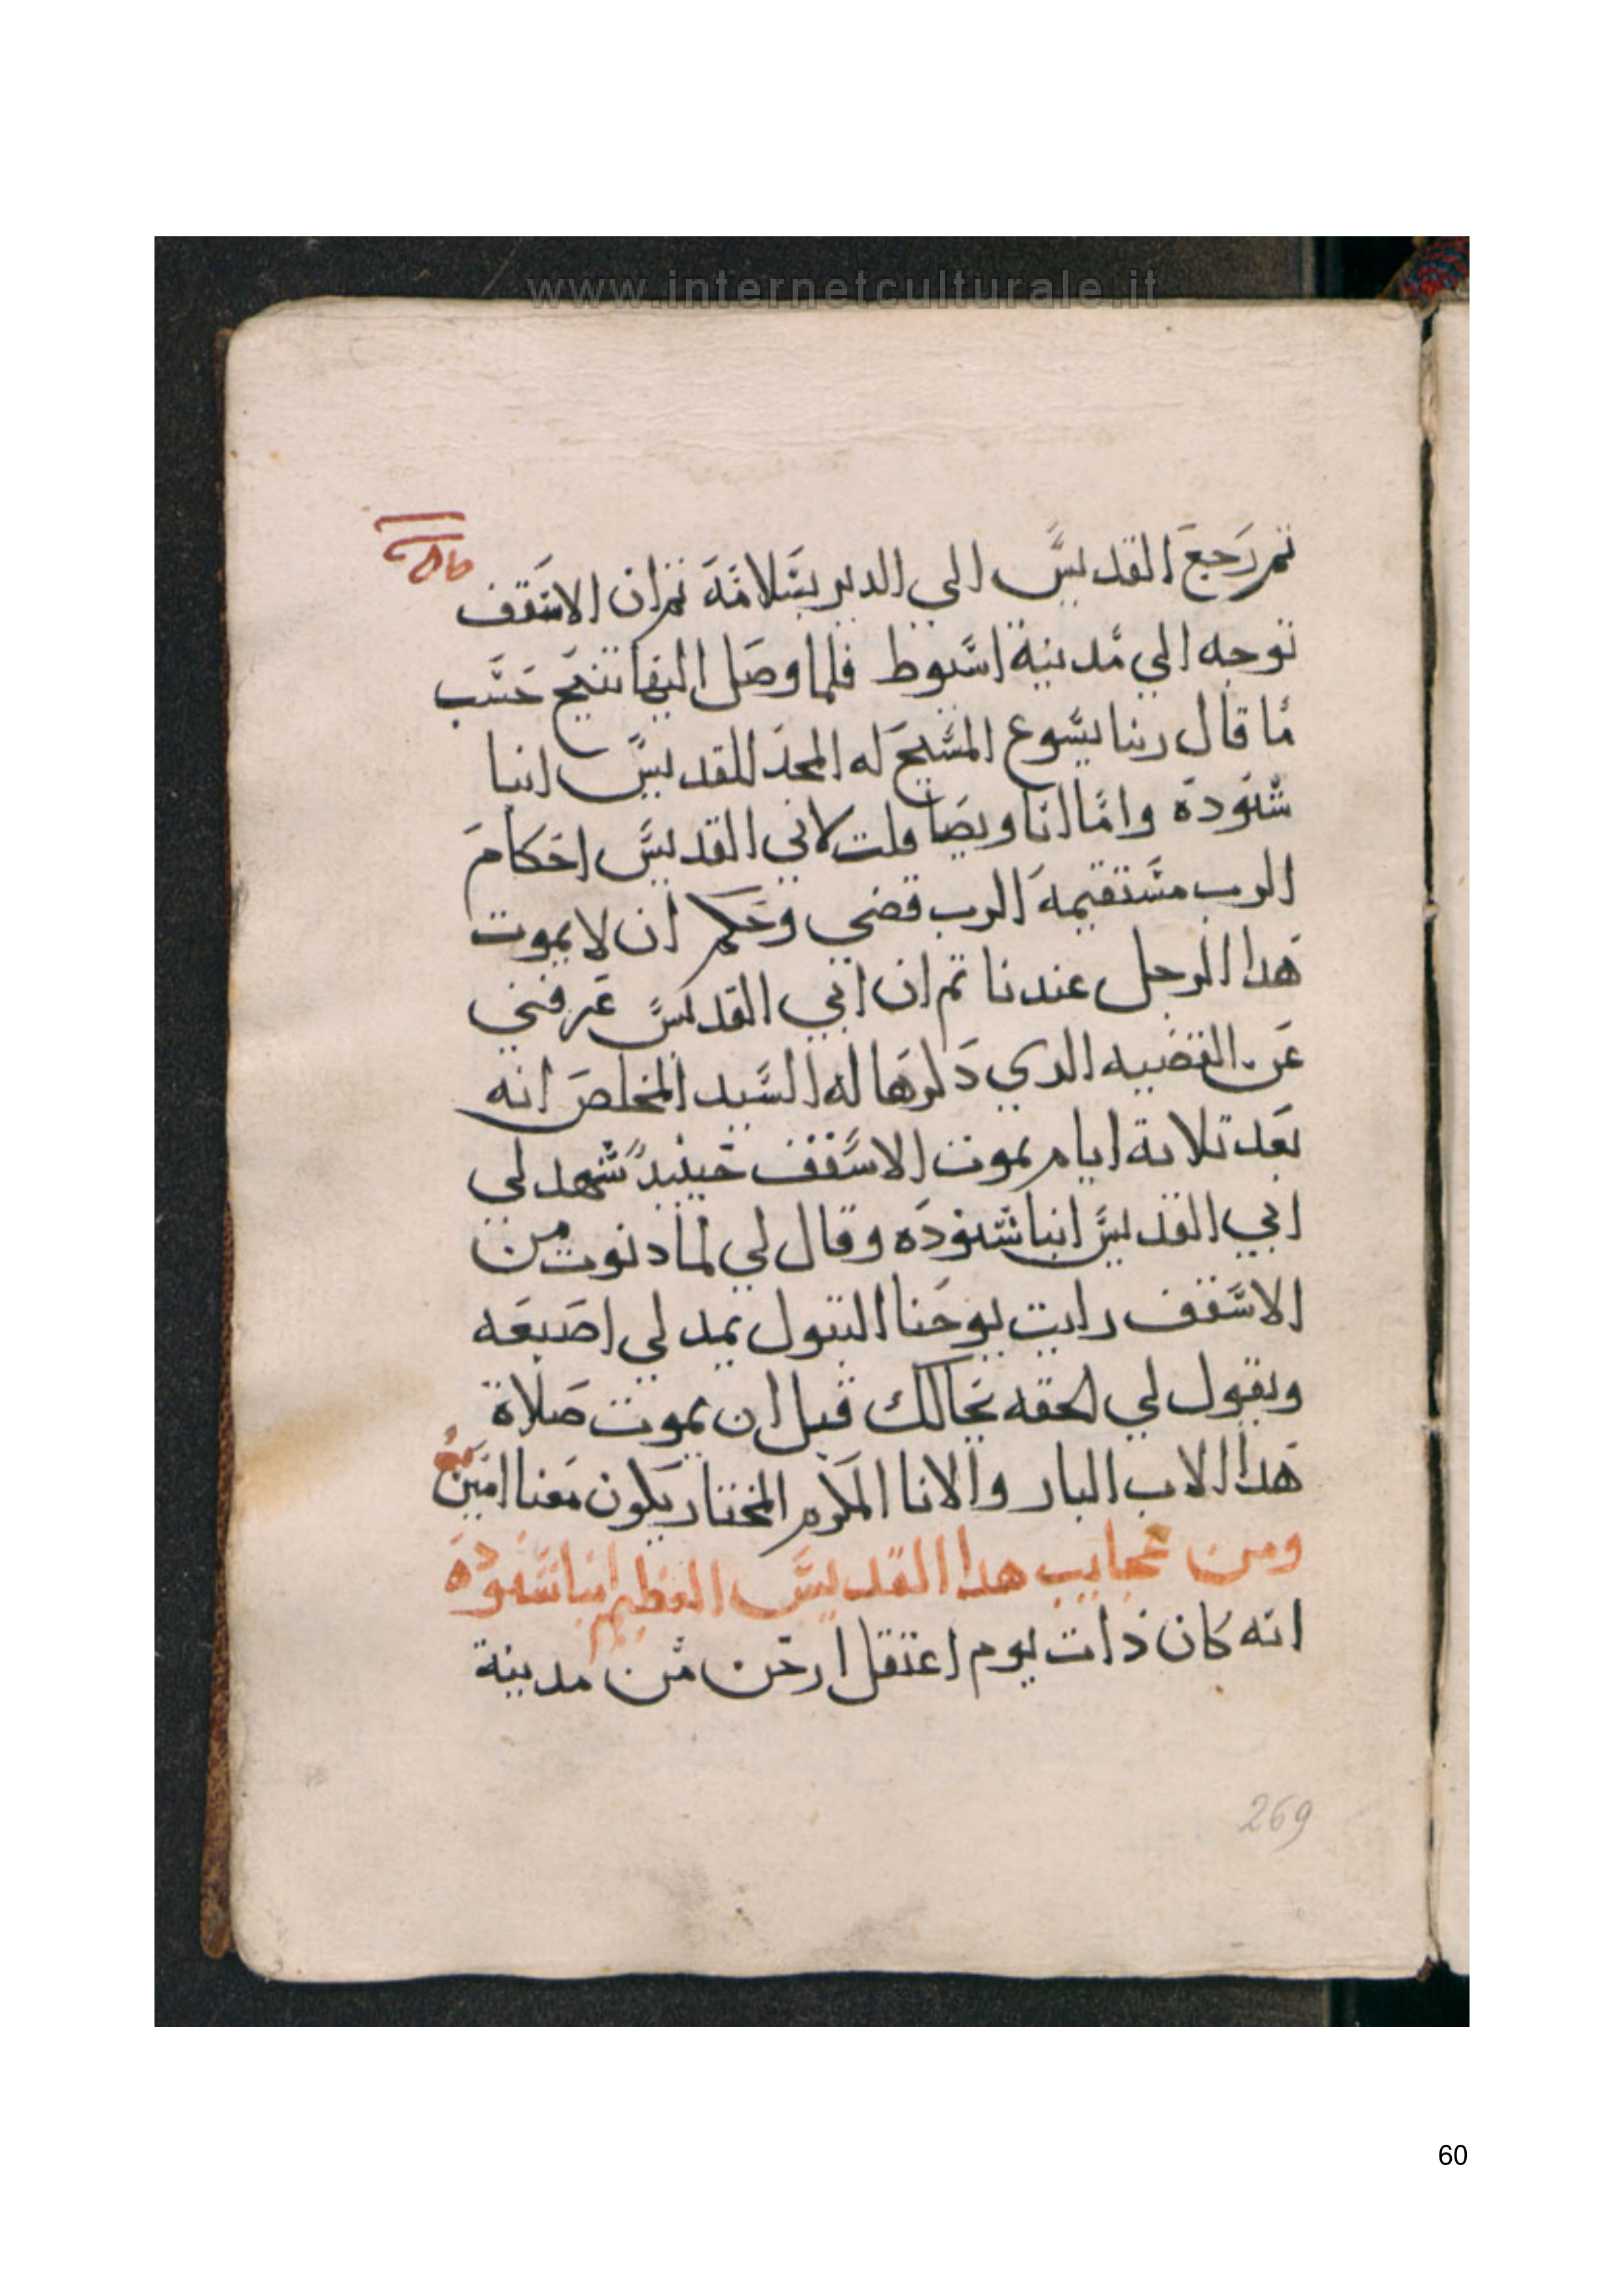 www.internetculturale.it
تم رجع القديس الي الدير بسلامة تم ان الاسقف
توجه الي مدينة اسيوط فلما وصل اليها تنيح حسب
ما قال ربنا يسوع المسيح له المجد للقديس انبا
شنوده واما انا ويصا قلت لابي القديس احكام
الرب مستقيمه الرب قضي وحكم ان لا يموت
هدا الرجل عندنا تم ان ابي القديس عرفني
عن القضيه الدي دكرها له السيد المخلص انه
بعد تلاتة ايام يموت الاسقف حينيد شهد لي
ابي القديس انبا شنوده وقال لي لما دنوت من
الاسقف رايت يوحنا البتول يمد لي اصبعه
ويقول لي الحقه بحالك قبل ان يموت صلاة
هدا الاب البار والانا المكرم المختار يكون معنا امين
ومن عجايب هدا القديس العظيم انبا شنوده
انه كان ذات يوم اعتقل ارخن من مدينة
269
60